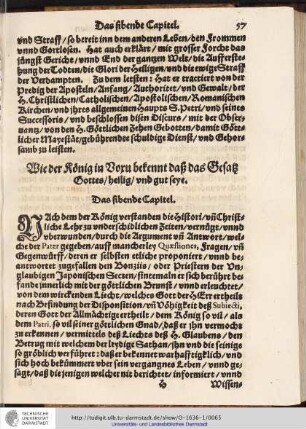 Das sibende Capitel. 57
vnd Straff / so bereit inn dem anderen Leben / den Frommen
vnnd Gottlosen. Hat auch erklärt / mit grosser Forcht das
jüngst Gericht / vnnd End der gantzen Welt / die Aufferste-
hung der Todten / die Glori der Heiligen / vnd die ewige Straff
der Verdampten. Zu dem letsten: Hat er tractiert von der
Predig der Aposteln / Anfang / Authoritet / vnd Gewalt / der
H. Christlichen / Catholischen / Apostolischen / Romanischen
Kirchen / vnd ihres allgemeinen Haupts S. Petri / vnd seines
Successoris / vnd beschlossen disen Discurs / mit der Obser-
uantz / von den H. Göttlichen Zehen Gebotten / damit Gött-
licher Mayestät / gebührende schuldige Dienst / vnd Gehor-
samb zu leisten.
Wie der König in Voxu bekennt daß das Gesatz
Gottes / heilig / vnd gut seye.
Das sibende Capitel.
NAch dem der König verstanden die Histori / vñ Christ-
liche Lehr zu underschidlichen Zeiten / vernügt / vnnd
vberwunden / durch die Argument vñ Antwort / wel-
che der Pater gegeben / auff mancherley Quæstiones, Fragen / vñ
Gegenwürff / deren er selbsten etliche proponiert / vnnd be-
antwortet angefallen den Bonziis / oder Priestern der Vn-
glaubigen Japonischen Secten / sintemaln er sich berührt be-
fande innerlich mit der Göttlichen brunst / vnnd erleuchtet /
von dem wirckenden Liecht / welches Gott der HErr ertheile
nach Befindung der Disposition / vñ Vöhigkeit deß Subiecti,
deren Gott der Allmächtige ertheilt / dem König so vil / als
dem Patri, so vil seiner göttlichen Gnad / daß er jhn vermocht
zu erkennen / vermittels deß Liechts deß H. Glaubens / den
Betrug mit welchem der leydige Sathan / jhn vnd die seinige
so gröblich verführet: daß er bekennet warhafftigklich / vnd
sich hoch bekümmert vber sein vergangnes Leben / vnnd ge-
sagt / daß die jenigen welcher mit berichtet / informiert / vnnd
h Wissen-
TECHNISCHE UNIVERSITÄT DARMSTADT
http://tudigit.ulb.tu-darmstadt.de/show/O-1636-1/0065
Universitäts- und Landesbibliothek Darmstadt